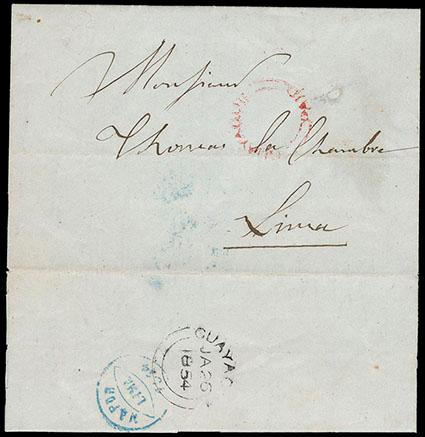 Monsieur
Thomas La Chambre
Lima
GUAYAQ
JA 26
1854
LIMA
VAPOR